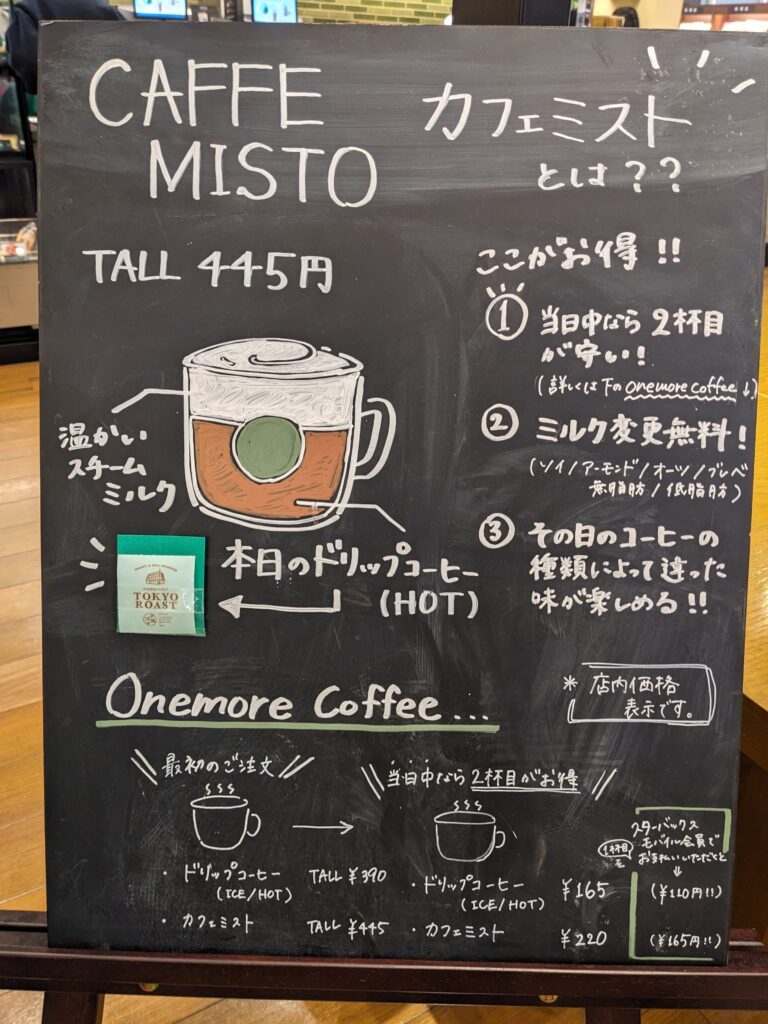 CAFFE
MISTO
カフェミスト
とは??
TALL 445円
温かい
スチーム
ミルク
本日のドリップコーヒー
(HOT)
TOKYO
ROAST
ここがお得!!
① 当日中なら 2杯目
が安い!
(詳しくは下の onemore coffee ↓)
② ミルク変更無料!
(ソイ/アーモンド/オーツ/ブレベ
無脂肪/低脂肪)
③ その日のコーヒーの
種類によって違った
味が楽しめる!!
* 店内価格
表示です。
Onemore Coffee...
最初のご注文
・ドリップコーヒー TALL ¥390
(ICE/HOT)
・カフェミスト TALL ¥445
当日中なら 2杯目がお得
・ドリップコーヒー ¥165
(ICE/HOT)
・カフェミスト ¥220
1杯目を
スターバックス
モバイル会員で
お支払いいただくと
↓
(¥110円!!)
(¥165円!!)